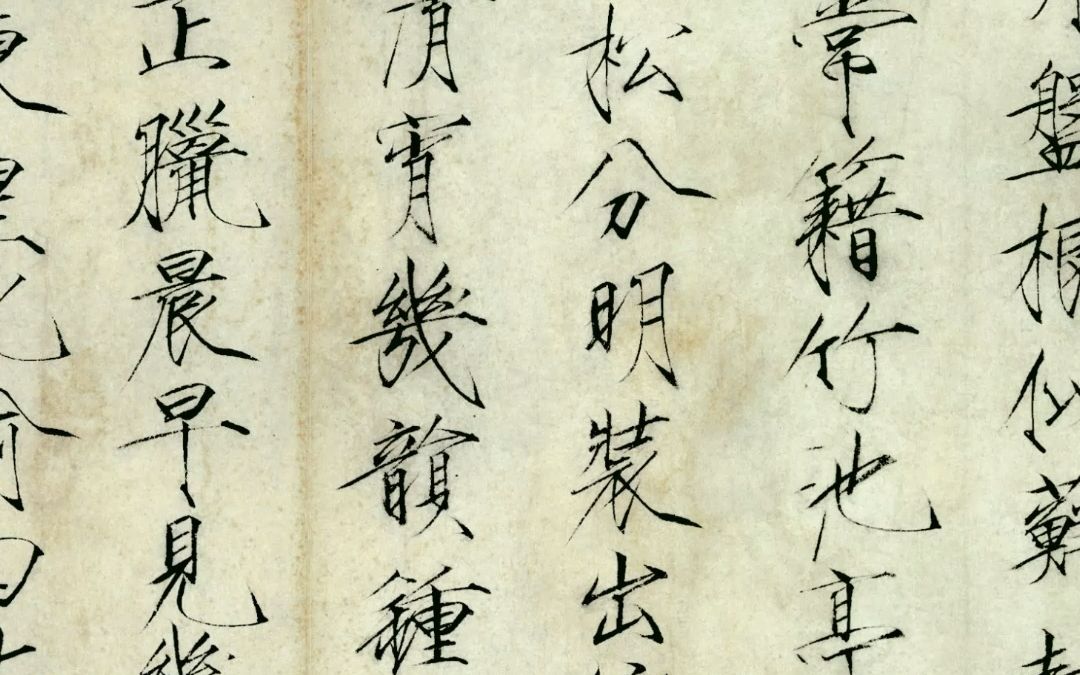 盤根似蘇
常籍竹池亭
松分明裝出
清宵幾韻鍾
正臘晨早見幾